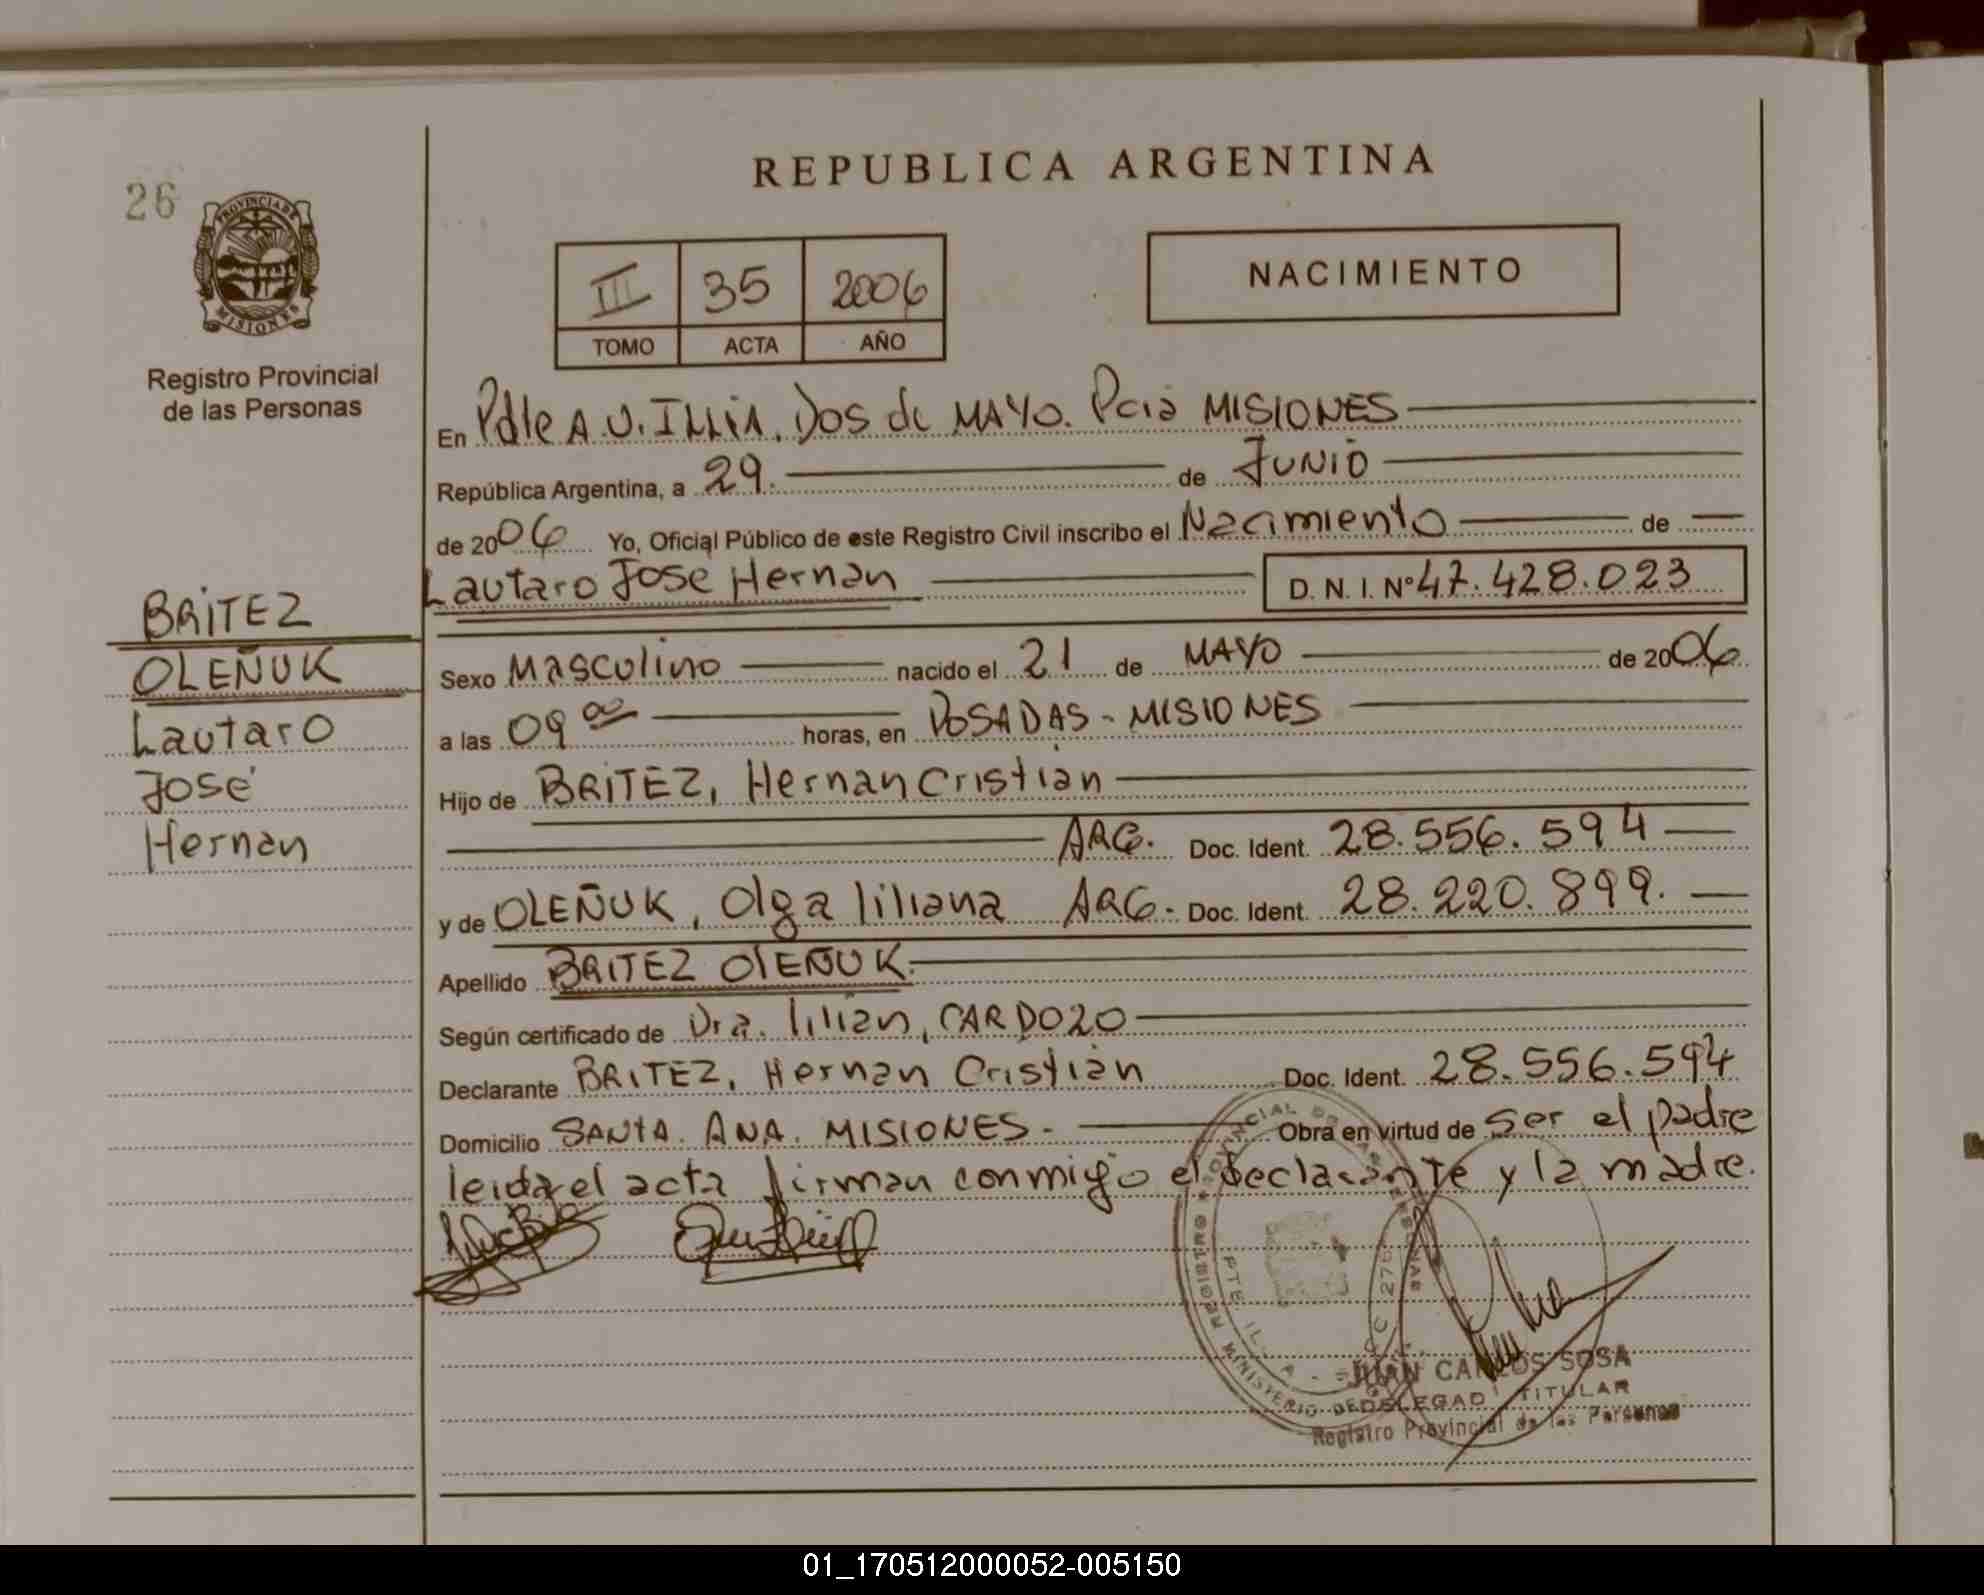 REPUBLICA ARGENTINA
26
PROVINCIA DE
MISIONES
Registro Provincial
de las Personas
III 35 2006
TOMO ACTA AÑO
NACIMIENTO
En Pdte A U. ILLIA. Dos de MAYO. Pcia MISIONES
República Argentina, a 29. de JUNIO
de 2006 Yo, Oficial Público de este Registro Civil inscribo el Nacimiento de
Lautaro José Hernan D. N. I. Nº 47.428.023
BRITEZ
OLEÑUK
Lautaro
José
Hernan
Sexo Masculino nacido el 21 de MAYO de 2006
a las 09 00 horas, en POSADAS - MISIONES
Hijo de BRITEZ, Hernan Cristian
ARG. Doc. Ident. 28.556.594
y de OLEÑUK, Olga liliana ARG. Doc. Ident. 28.220.899.
Apellido BRITEZ OlEÑUK.
Según certificado de Dra. lilian, CARDOZO
Declarante BRITEZ, Hernan Cristian Doc. Ident. 28.556.594
Domicilio SANTA. ANA. MISIONES - Obra en virtud de ser el padre
leida el acta firman conmigo el declarante y la madre.
JUAN CARLOS SOSA
DELEGADO TITULAR
Registro Provincial de las Personas
01_170512000052-005150